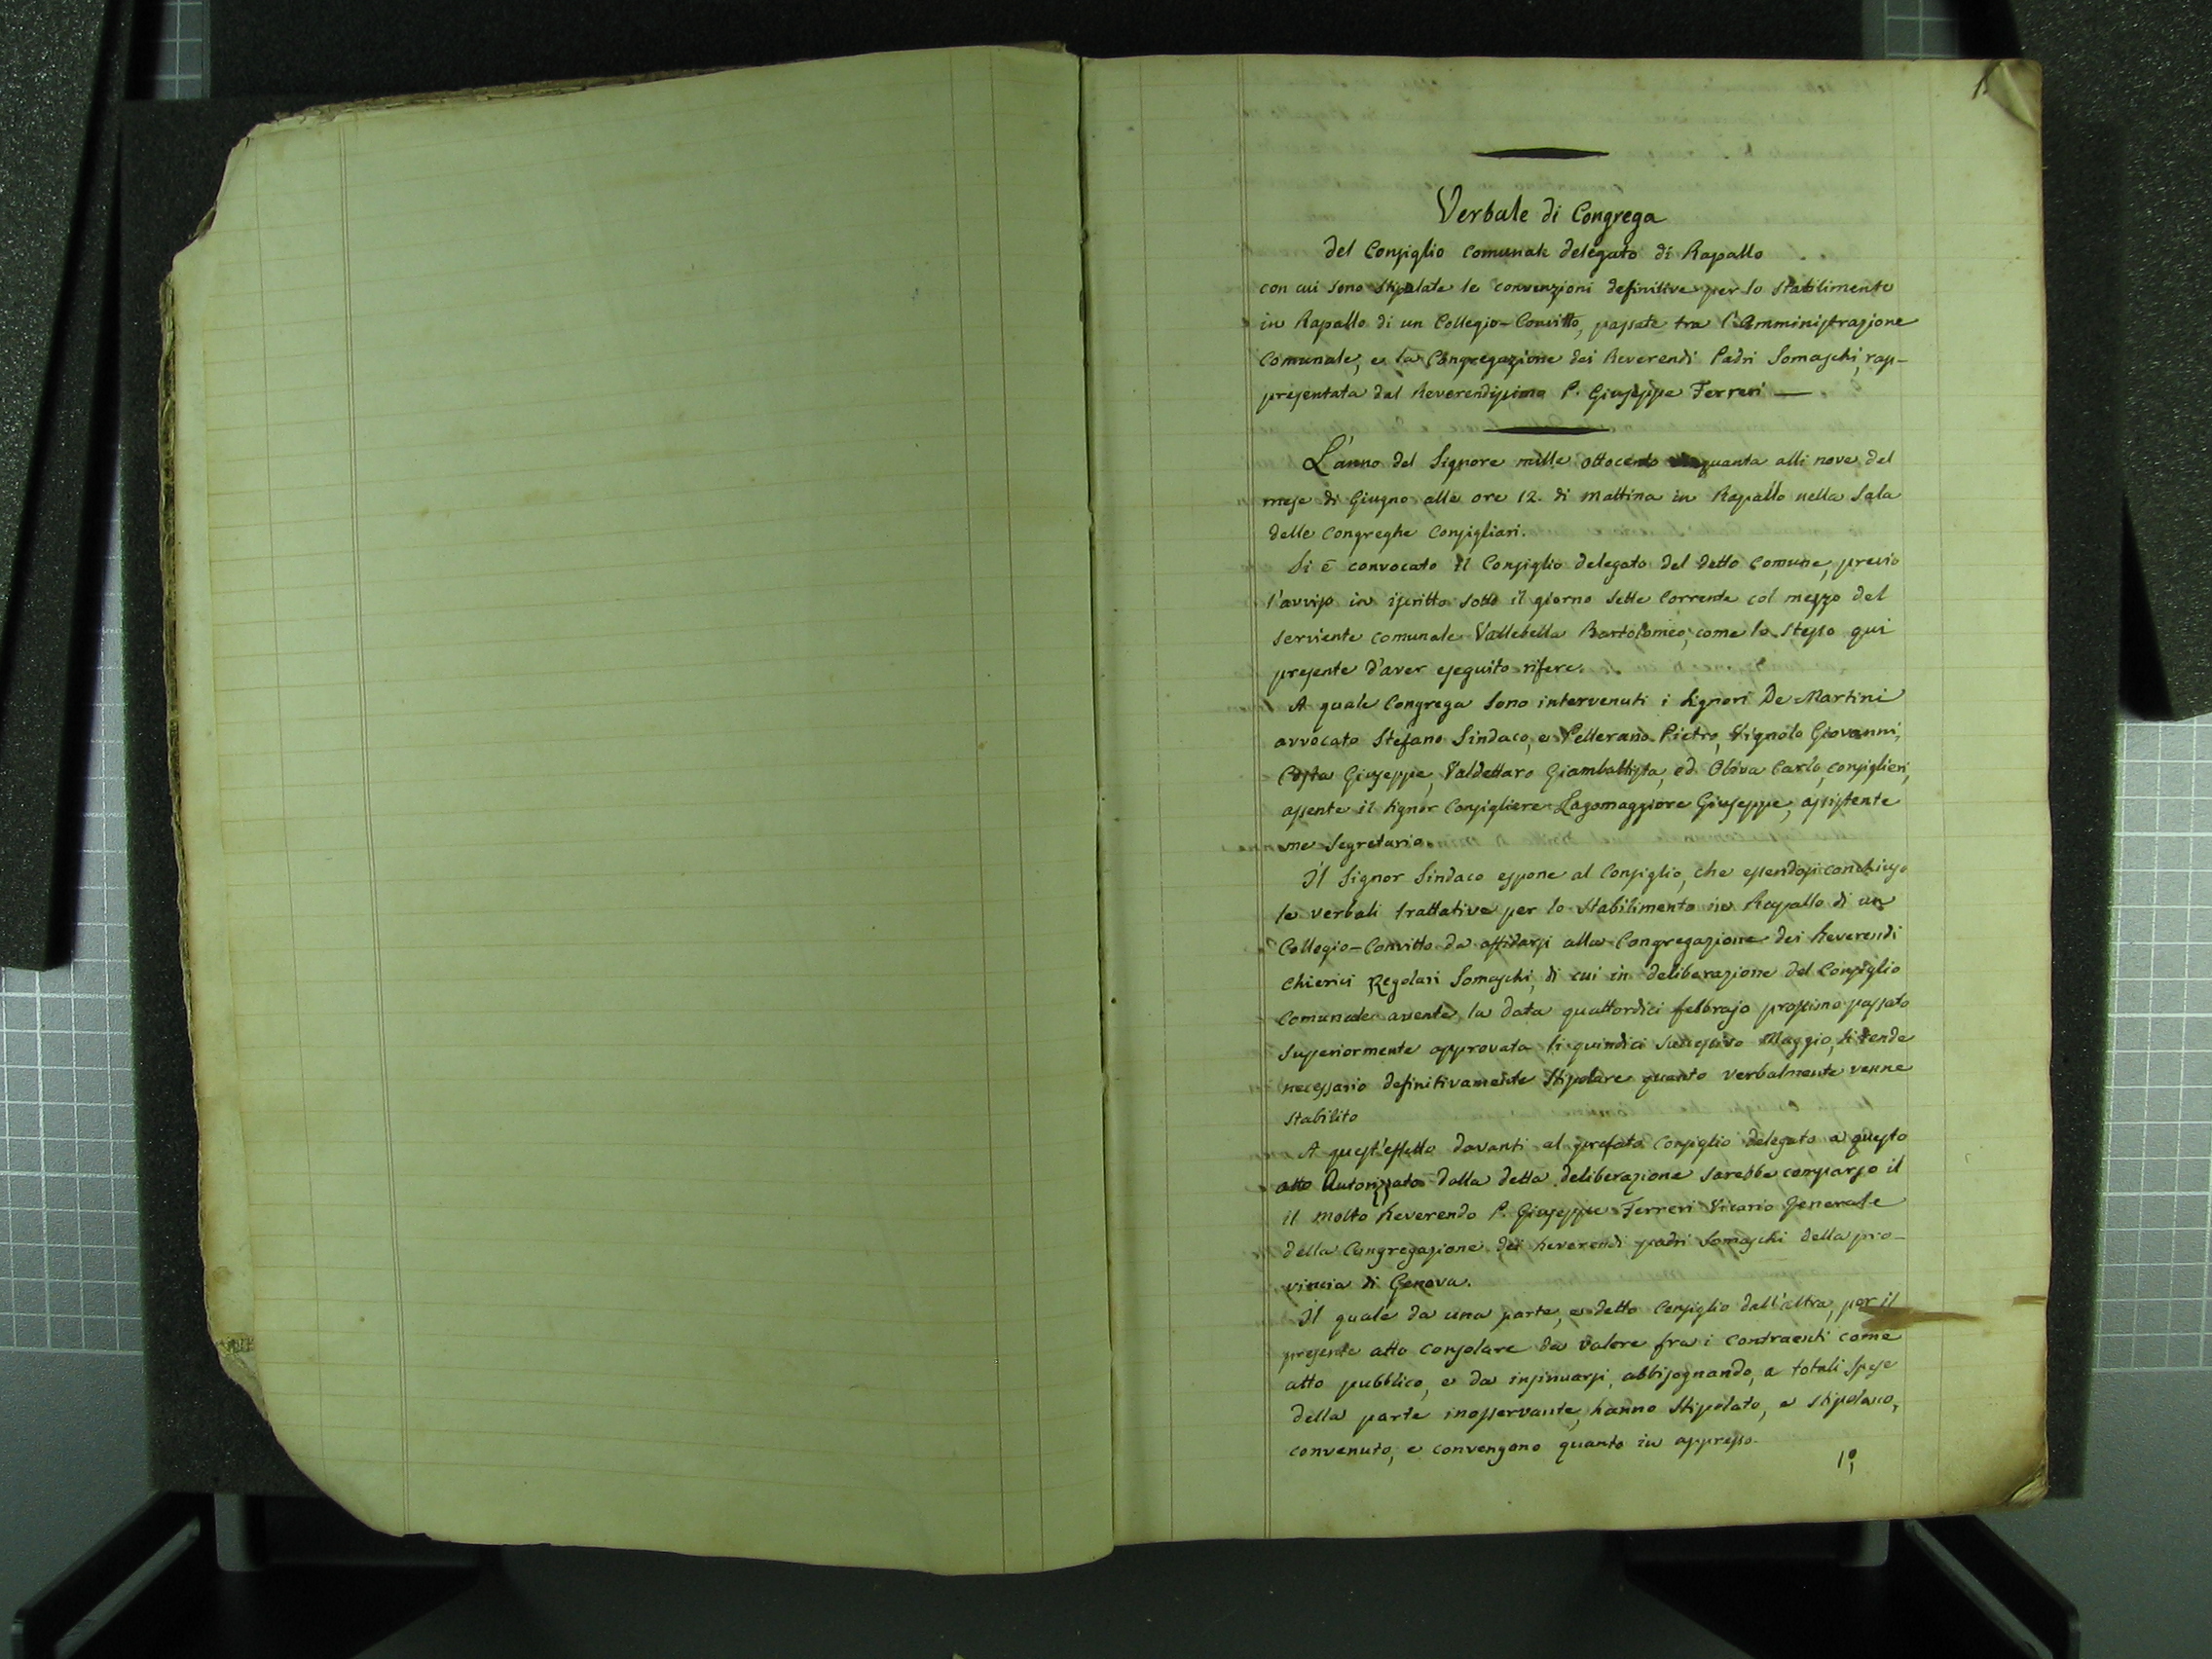 Verbale di Congrega
del Consiglio comunale delegato di Rapallo
con cui sono stipulate le convenzioni definitive per lo stabilimento
in Rapallo di un Collegio-Convitto, passate tra l'Amministrazione
Comunale, e la Congregazione dei Reverendi Padri Somaschi, rap-
presentata dal Reverendissimo P. Giuseppe Ferreri —
L'anno del Signore mille ottocento cinquanta alli nove del
mese di Giugno alle ore 12. di mattina in Rapallo nella Sala
delle Congreghe Consigliari.
Si è convocato il Consiglio delegato del detto Comune, previo
l'avviso in iscritto sotto il giorno sette corrente col mezzo del
serviente comunale Vallebella Bartolomeo, come lo stesso qui
presente d'aver eseguito rifere.
A quale Congrega sono intervenuti i Signori De-Martini
avvocato Stefano Sindaco, e Pellerano Pietro, Vignolo Giovanni,
Costa Giuseppe, Valdettaro Giambattista, ed Oliva Carlo, consiglieri,
assente il Signor Consigliere Lagomaggiore Giuseppe, assistente
me Segretario.
Il Signor Sindaco espone al Consiglio, che essendosi conchiuse
le verbali trattative per lo stabilimento in Rapallo di un
Collegio-Convitto da affidarsi alla Congregazione dei Reverendi
Chierici Regolari Somaschi, di cui in deliberazione del Consiglio
Comunale avente la data quattordici febbrajo prossimo passato
superiormente approvata li quindici successivo Maggio, si rende
necessario definitivamente stipolare quanto verbalmente venne
stabilito
A quest'effetto davanti al prefato Consiglio delegato, a questo
atto Autorizzato dalla detta deliberazione sarebbe comparso il
il molto Reverendo P. Giuseppe Ferreri Vicario Generale
della Congregazione dei Reverendi padri Somaschi della pro-
vincia di Genova.
Il quale da una parte, e detto Consiglio dall'altra, per il
presente atto consolare da valere fra i contraenti come
atto pubblico, e da insinuarsi, abbisognando, a totali spese
della parte inosservante, hanno stipolato, e stipolano,
convenuto, e convengono quanto in appresso.
1º,